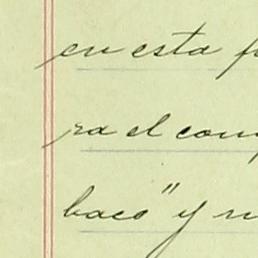 en esta f
ra el com
baco" y n